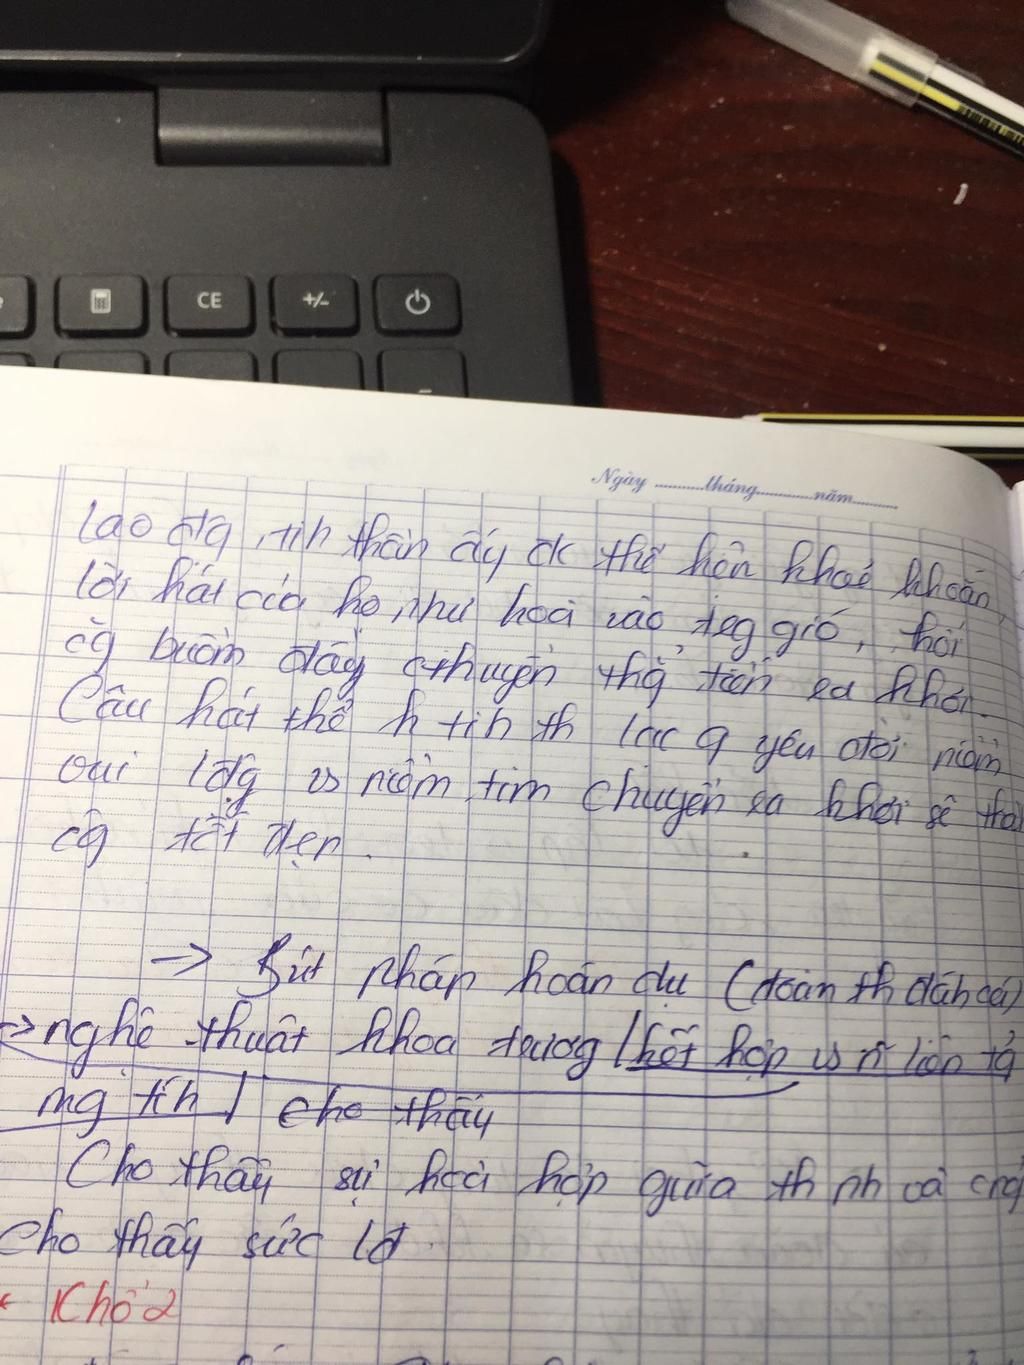 CE
+/-
Ngày ........tháng.........năm........
lao đg, tih thần ấy đk thể hện khoẻ khoắn,
lời hát của họ như hoà vào trg gió, thổi
cg buồm đẩy cthuyền thg tiến ra khơi.
Câu hát thể h tih th lạc q yêu đời niềm
vui lđg vs niềm tim chuyến ra khơi sẽ thà
cg tốt đẹp.
→ Bút pháp hoán dụ (đoàn th đáh cá)
→ nghệ thuật khoa trương / kết hợp vs liên tg
mg tíh / cho thấy
Cho thấy sự hoà hợp giữa th nh và cng
cho thấy sức lđ.
← Khổ 2